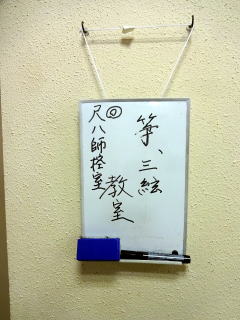 箏、三絃
教室
◎尺八師格室